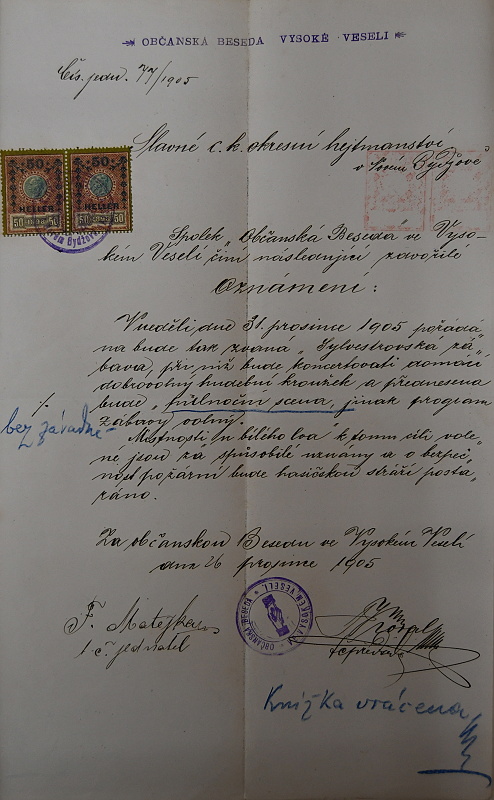 OBČANSKÁ BESEDA VYSOKÉ VESELÍ
Čís. jedn. 77/1905
Slavné c. k. okresní hejtmanství
v Novém Bydžově
50 50
HELLER HELLER
50 50 50 50
Spolek „Občanská Beseda" ve Vyso-
kém Veselí činí následující zdvořilé
Oznámení:
V neděli dne 31. prosince 1905 pořádá-
na bude tak zvaná „Sylvestrovská zá-
bava", při níž bude koncertovati domácí
dobrovolný hudební kroužek a přednesena
bude „půlnoční scena, jinak program
zábavy volný.
bez závadné
Místnosti „u bílého lva" k tomu cíli vole-
né jsou za způsobilé uznány a o bezpeč-
nost požární bude hasičskou stráží posta-
ráno.
Za občanskou Besedu ve Vysokém Veselí
dne 26 prosince 1905
OBČANSKÁ BESEDA
VE VYSOKÉM VESELÍ
F. Matejka
t. č. jednatel
t. č. předseda
Knížka vrácena